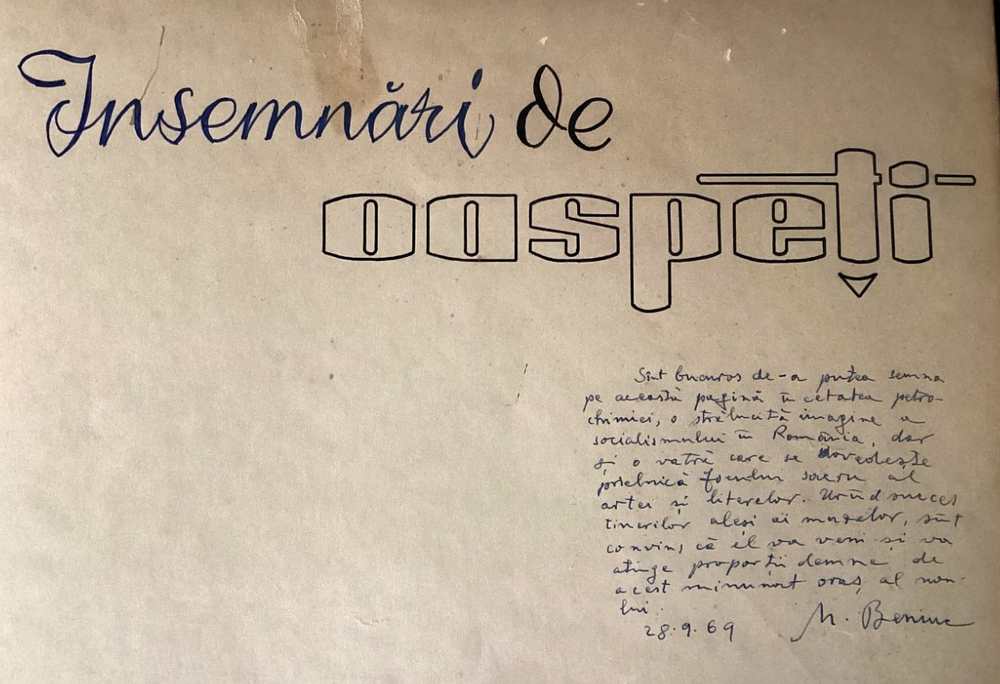 Însemnări de
oaspeți
Sînt bucuros de-a putea semna
pe această pagină în cetatea petro-
chimiei, o strălucită imagine a
socialismului în România, dar
și o vatră care se dovedește
prielnică focului sacru al
artei și literelor. Urînd succes
tinerilor aleși ai muzelor, sînt
convins că el va veni și va
atinge proporții demne de
acest minunat oraș al nou-
lui.
28.9.69 M. Beniuc